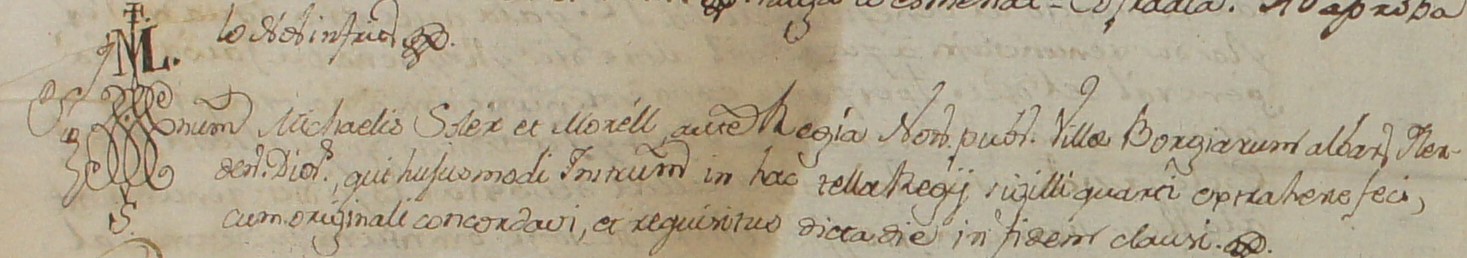 esmenat = Costada. Ab aproba
lo Not infrit
M.
S.
num Michaelis Soler et Morell, aucte Regia Not. publ. Villæ Borgiarum albar. Iler-
den. Dios. qui hujusmodi Instrum in hac cella Regij sigilli quarti extrahere feci,
cum originali concordavi, et requisitus dicta die in fidem clausi.